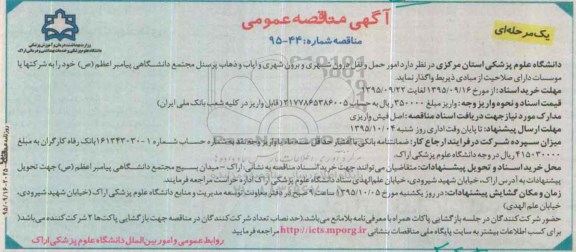 آگهی مناقصه عمومی
یک مرحله‌ای
مناقصه شماره: ۴۴-۹۵
وزارت بهداشت، درمان و آموزش پزشکی
دانشگاه علوم پزشکی و خدمات بهداشتی و درمانی اراک
دانشگاه علوم پزشکی استان مرکزی در نظر دارد امور حمل و نقل درون شهری و برون شهری و ایاب و ذهاب پرسنل مجتمع دانشگاهی پیامبر اعظم (ص) خود را به شرکتها یا
موسسات دارای صلاحیت از مبادی ذیربط واگذار نماید.
مهلت خرید اسناد: از مورخ ۱۳۹۵/۰۹/۱۶ لغایت ۱۳۹۵/۰۹/۲۲
قیمت اسناد و نحوه واریز وجه: واریز مبلغ ۳۵۰۰۰۰ ریال به حساب ۲۱۷۷۸۶۵۳۸۶۰۰۵ (قابل واریز در کلیه شعب بانک ملی ایران)
مدارک مورد نیاز جهت دریافت اسناد مناقصه: اصل فیش واریزی
مهلت ارسال پیشنهاد: تا پایان وقت اداری روز شنبه ۱۳۹۵/۱۰/۰۴
میزان سپرده شرکت در فرایند ارجاع کار: ضمانتنامه بانکی با اعتبار حداقل سه ماه یا واریز وجه نقد به شماره حساب شماره ۱-۱۶۱۳۴۳۰۳۰۰ بانک رفاه کارگران به مبلغ
۴۱۵۰۳۰۰۰۰ ریال در وجه دانشگاه علوم پزشکی اراک.
محل خرید اسناد و تحویل پیشنهادات: متقاضیان می‌توانند جهت خرید اسناد مناقصه به نشانی اراک - میدان بسیج - مجتمع دانشگاهی پیامبر اعظم (ص) جهت تحویل
پیشنهادات به آدرس اراک، خیابان شهید شیرودی، خیابان علم‌الهدی ستاد دانشگاه علوم پزشکی اراک اداره حراست مراجعه فرمایند.
زمان و مکان گشایش پیشنهادات: در روز یکشنبه مورخ ۱۳۹۵/۱۰/۰۵ ساعت ۹ صبح در دفتر معاونت توسعه مدیریت و منابع دانشگاه علوم پزشکی اراک (خیابان شهید شیرودی،
خیابان علم الهدی)
حضور شرکت کنندگان در جلسه بازگشایی پاکات همراه با معرفی نامه بلامانع می‌باشد. (حد نصاب تعداد شرکت کنندگان در مناقصه جهت بازگشایی پاکت‌ها ۲ شرکت کننده می‌باشد)
برای کسب اطلاعات بیشتر به سایت پایگاه ملی مناقصات بنشانی http://iets.mporg.ir مراجعه فرمایید
روابط عمومی و امور بین الملل دانشگاه علوم پزشکی اراک